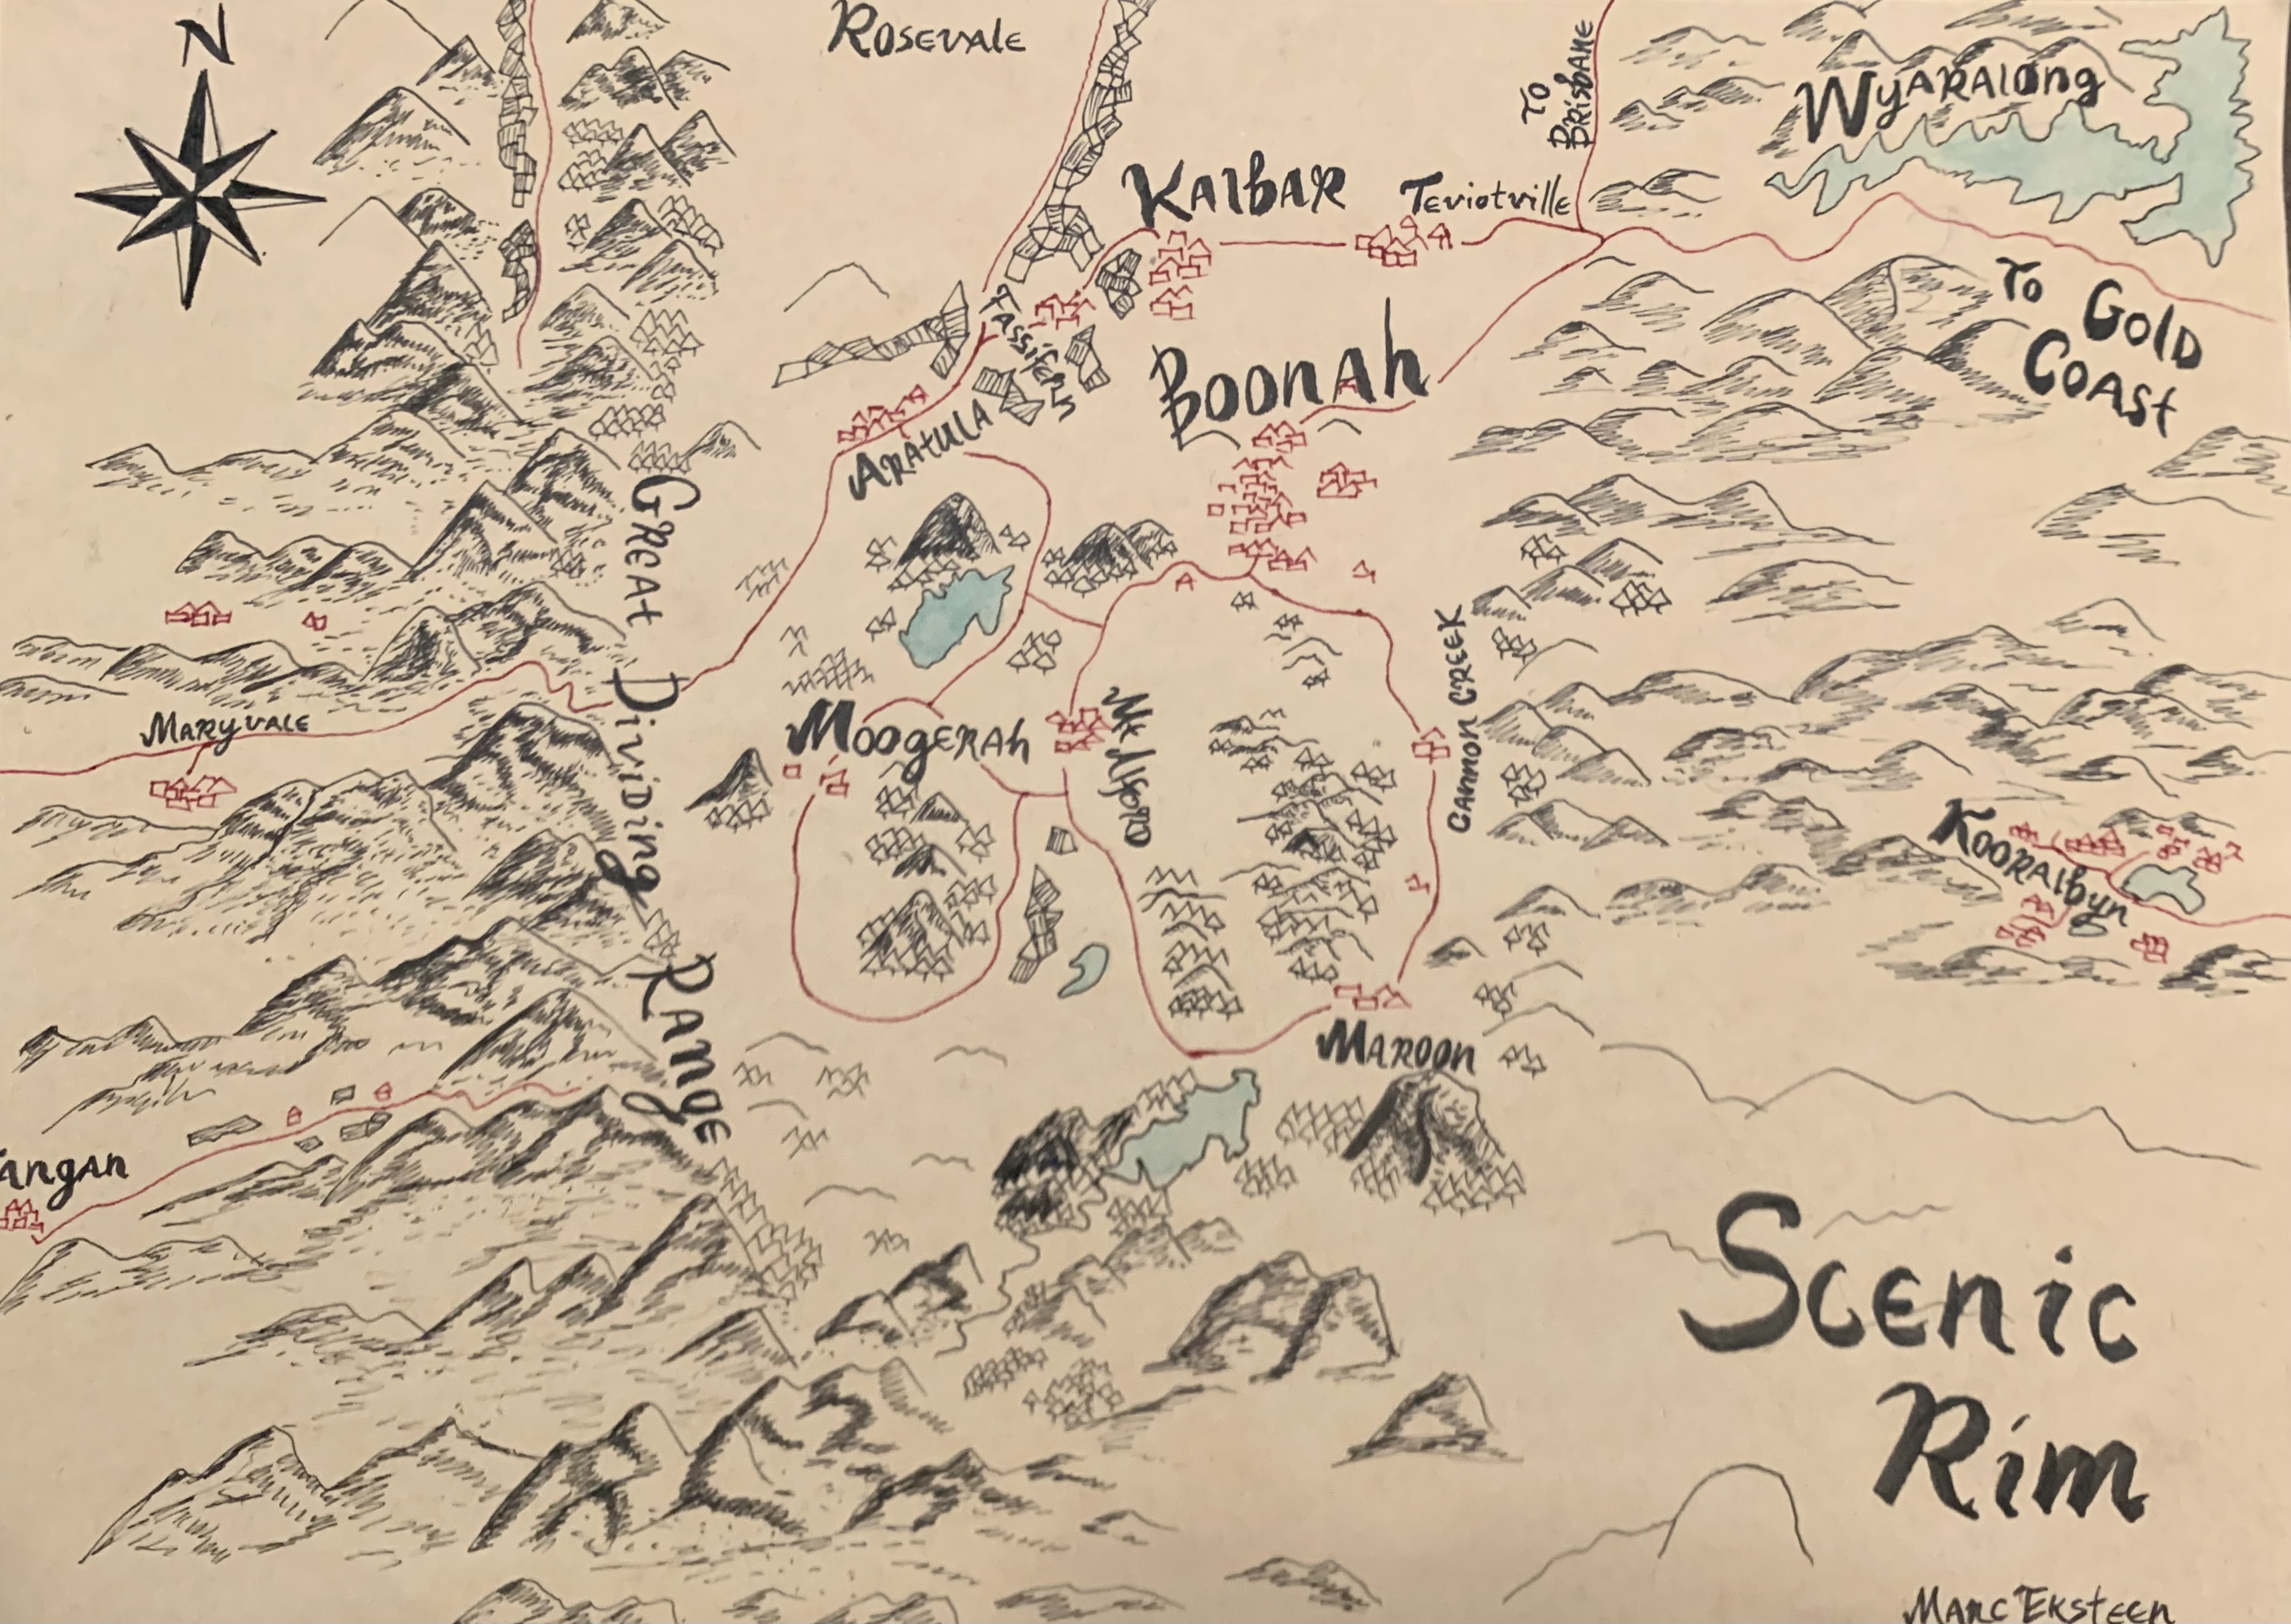 N
Rosevale
To
Brisbane
Wyaralong
Kalbar
Teviotville
To Gold
Coast
Fassifern
Boonah
Aratula
Great
Dividing
Range
Maryvale
Moogerah
Mt Alford
Cannon Creek
Kooralbyn
Maroon
angan
Scenic
Rim
Marc Eksteen